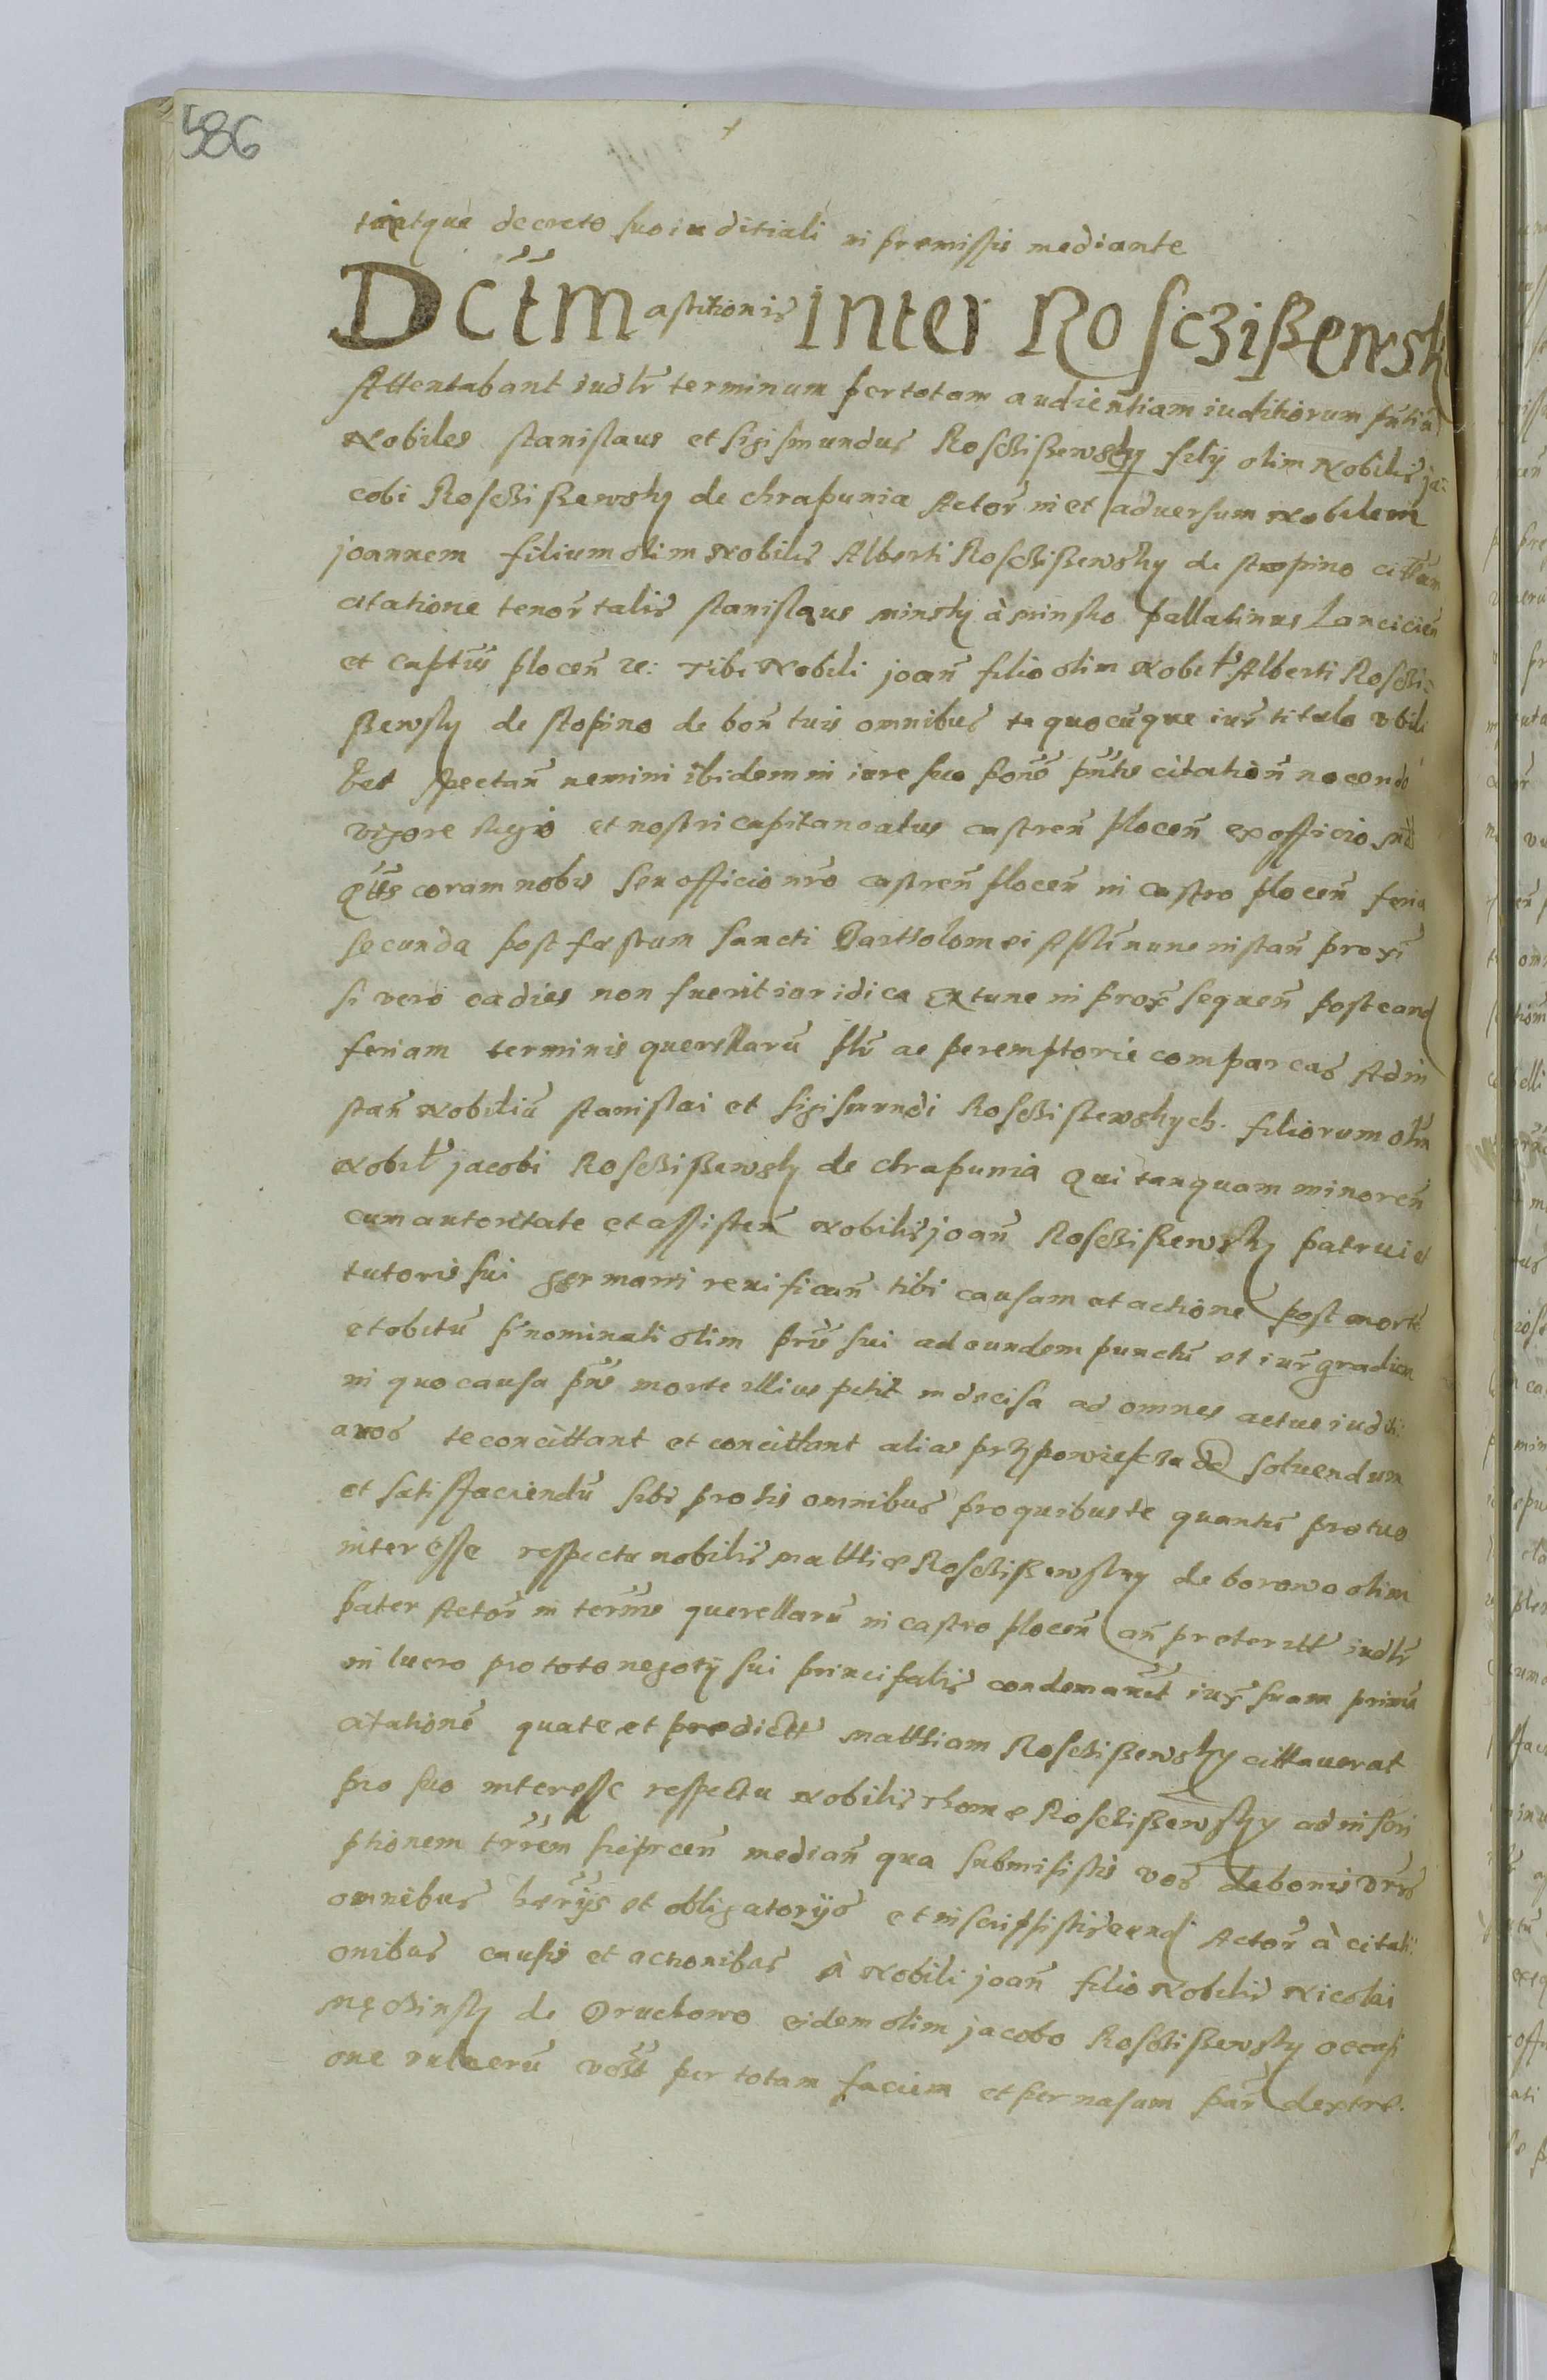 586
tiatque decreto suo iuditiali in premissis mediante
Dctm astitionis inter Rosczißewski
Attentabant iudlr terminum per totam audientiam iuditiorum pntiu
Nobiles Stanislaus et Sigismundus Rosczißewsky filij olim Nobilis Ja:
cobi Rosczißewsky de Chrapunia Actor in et adversum Nobilem
Joannem filium olim Nobilis Alberti Rosczißewsky de Stopino cittam
citatione tenor talis Stanislaus Minsky à Minsko pallatinus Lancicien
et captus plocen re: Tibi Nobili Joan filio olim Nobil Alberti Roschi=
ßewsky de Stopino de bon tuis omnibus te quocuque iur titulo ubili
bet spectan nemini ibidem in iure suo pone pntis citation nocendo
vigore Regio et nostri capitaneatus castren plocen ex officio md
Qtts coram nobis seu officio nro castren plocen in castro plocen feria
secunda post festum sancti Bartholomei Apli nunc instan proxi
si vero ea dies non fuerit iuridica ex tunc in prox sequen post eand
feriam terminis querellaru plr ac peremptorie compareas Ad in
stan Nobiliu Stanislai et Sigismundi Rosczißewskych filiorum olim
Nobil Jacobi Rosczißewsky de Chrapunia Qui tanquam minoren
cum autoritate et assisten Nobilis Joan Rosczißewsky patrui et
tutoris sui germani reuifican tibi causam et actione post morte
et obitu pnominati olim pris sui ad eundem punctu et iur gradum
in quo causa pns morte illius petit indecisa ad omnes actus iuditi:
arios te concittant et concittant alias przypowiescia ad soluendum
et satisfaciendu sibi pro his omnibus pro quibus te quantu pro tuo
interesse respectu nobilis Matthie Rosczißewsky de borowo olim
pater Actor in termis querellaru in castro plocen an preteritt iudlr
in lucro pro toto negotij sui principalis condemanit iux suam primu
citatione qua te et predictt Matthiam Rosczißewsky cittaverat
pro suo interesse respectu Nobilis Thome Rosczißewsky ad inscri
ptionem trrem sieprcen median qua submisistis vos de bonis vris
omnibus herijs et obligatorijs et inscripsistis eund Actor à citati:
onibus causis et actionibus à Nobili Joan filio Nobilis Nicolai
Męczinsky de Druchowo eidem olim Jacobo Rosczißewsky occasi
one vulneru vost per totam faciem et per nasum par dextre.